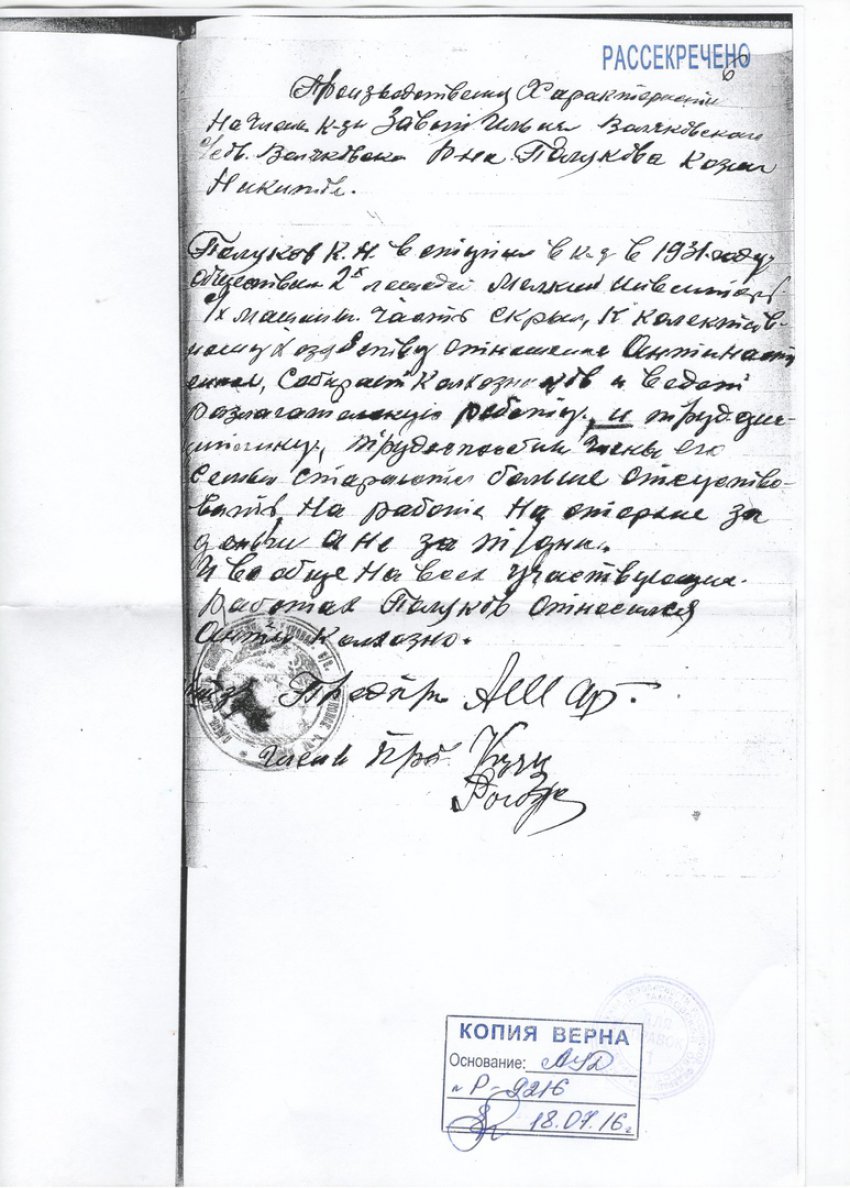 РАССЕКРЕЧЕНО
6
Производственая Характеристи
На члена к-за Завет Ильича Волчковского
с/св. Волчковско р-на Полукова Козм
Никитов.
Полуков К.Н. вступил в к-з в 1931 году
обществил 2х лошадей мелкий инвентарь
с/х машины. часть скрыл, К колектив-
ному хозяйству отношение Антинаст
Собирает колхозников и ведет
разлагательскую работу, и трудсци-
плину, трудоспособн члены его
семьи стараются больше отсуство-
вать На работе На стороне за
деньги а не за т/дни.
И вообще на всех участвующих
работах Полуков относился
Анти Колхозно.
Предпр.
члены пр.
КОПИЯ ВЕРНА
Основание: АУД
№ Р-9216
18.07.16г